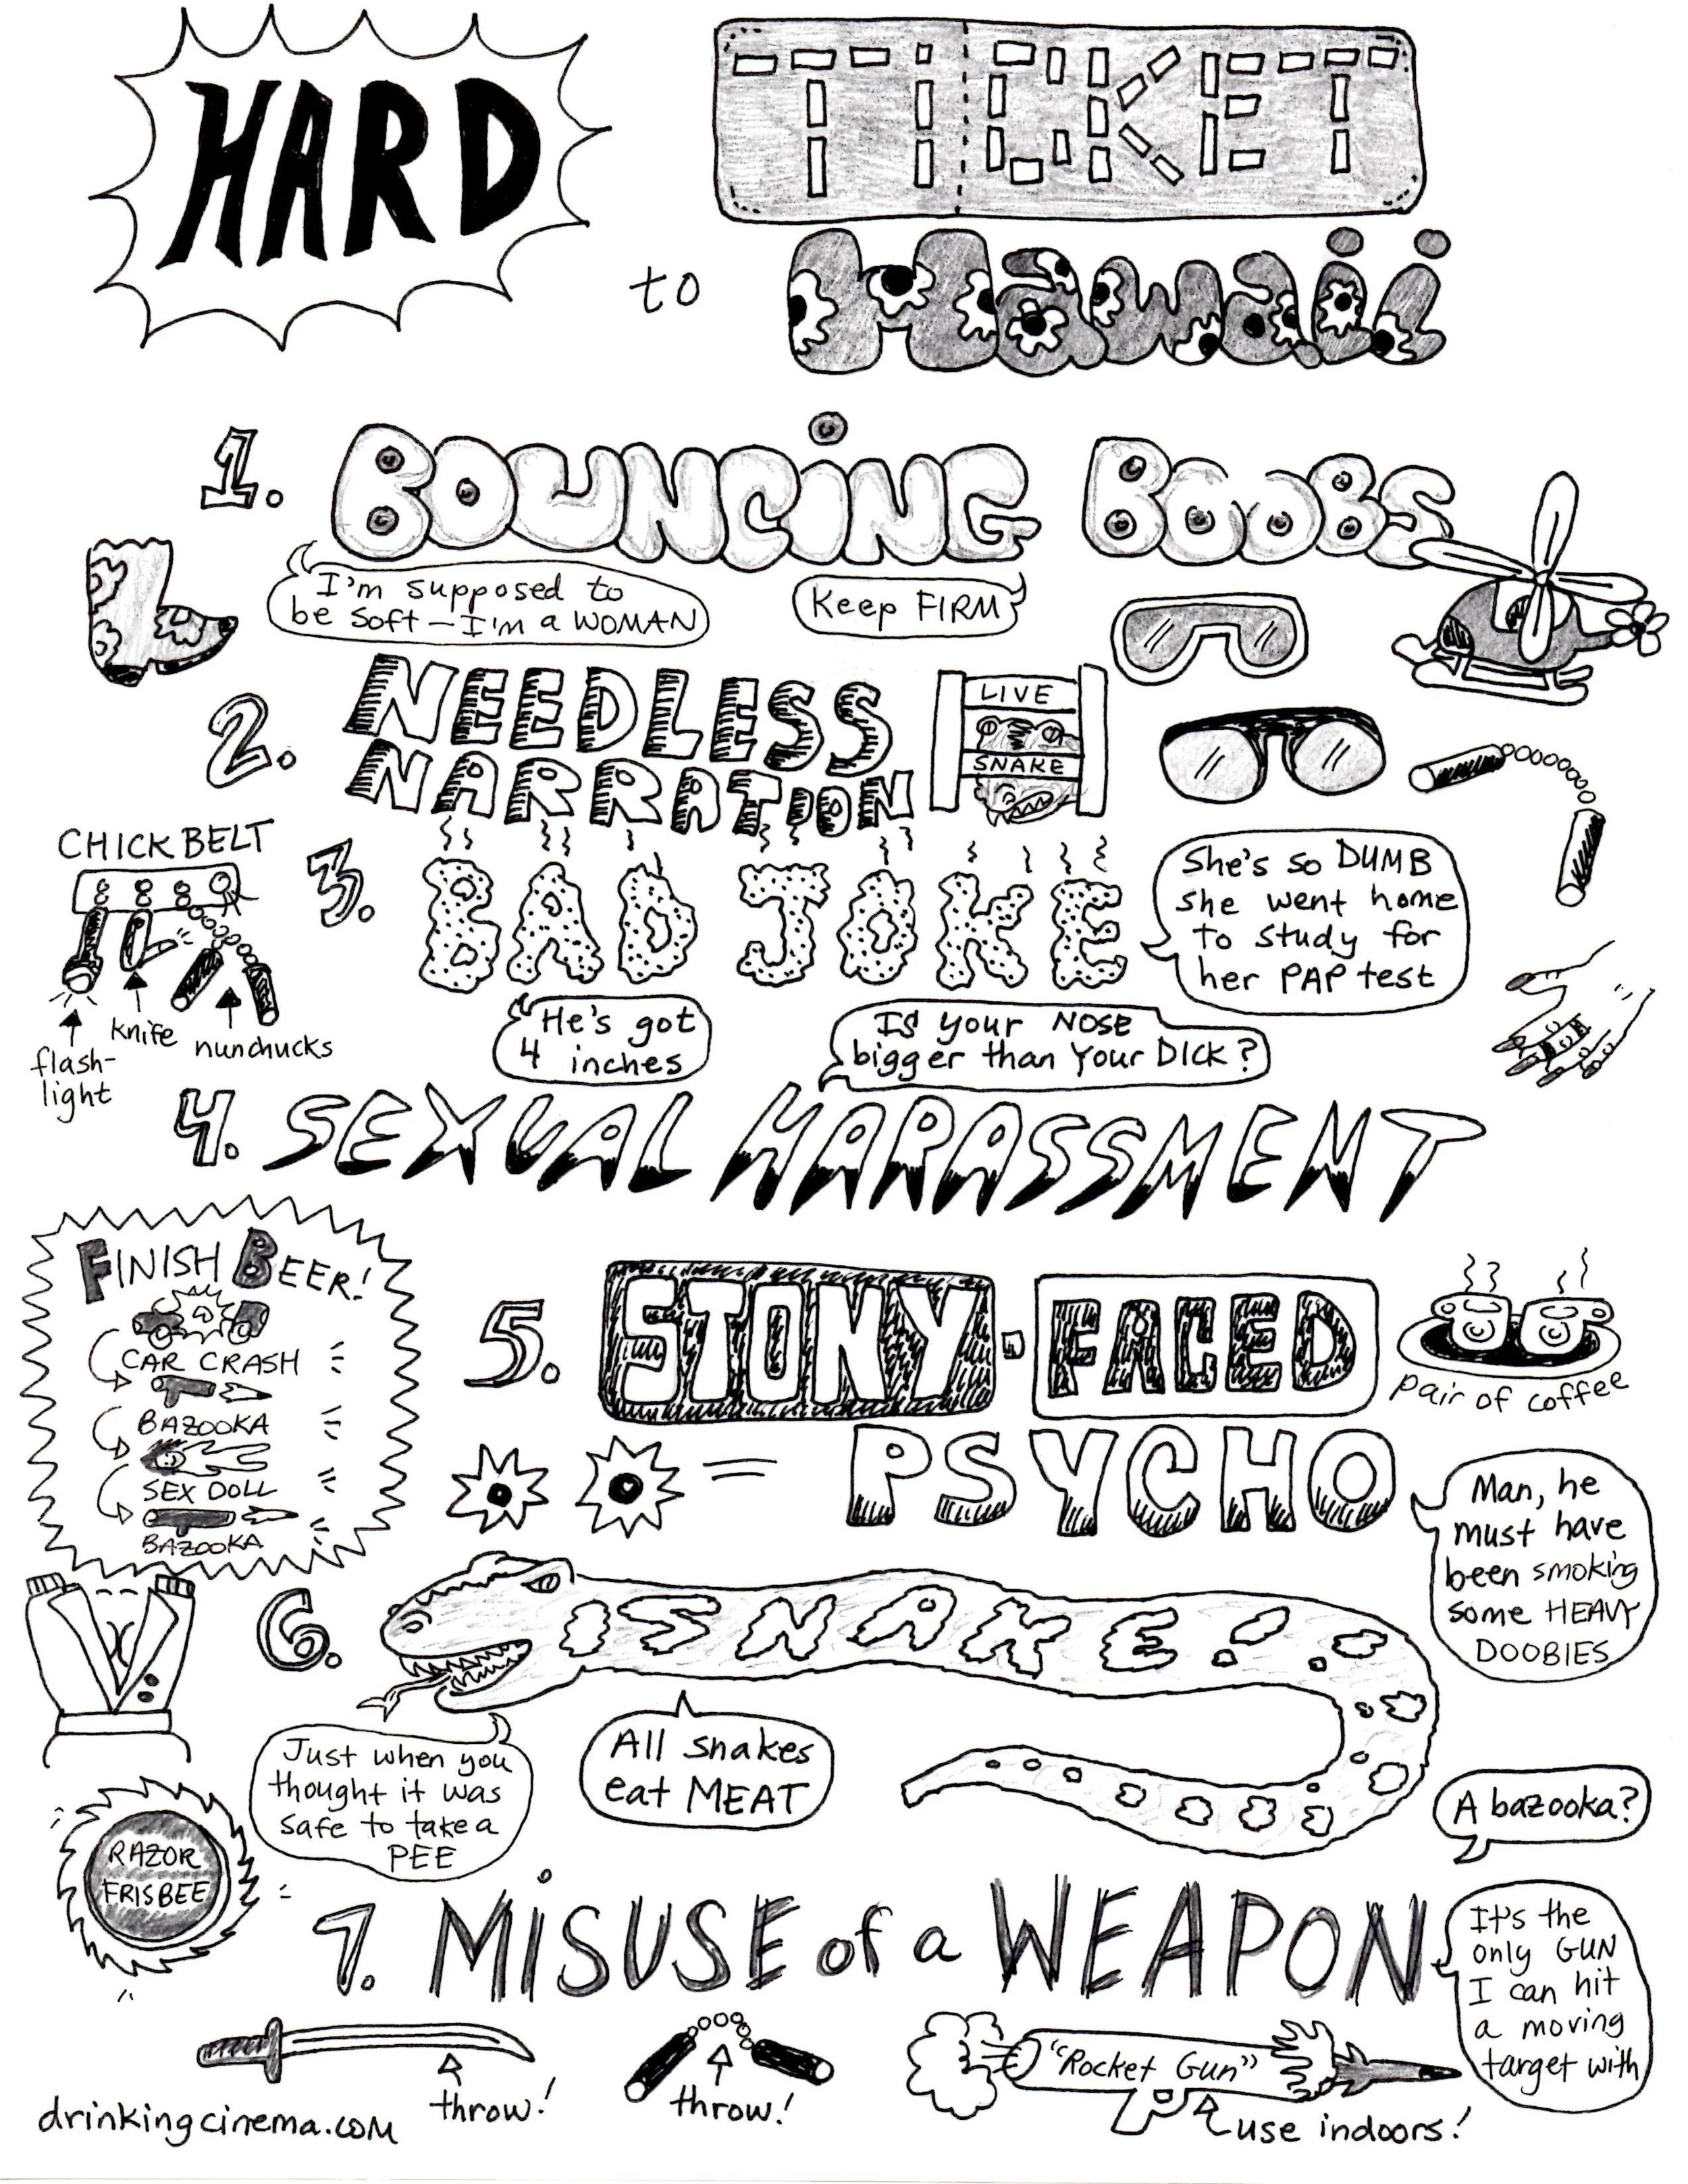 HARD
TICKET
to Hawaii
1. BOUNCING BOOBS
I'm supposed to
be soft – I'm a WOMAN
Keep FIRM
2. NEEDLESS
NARRATION
LIVE
SNAKE
CHICK BELT
flash-
light
knife
nunchucks
3. BAD JOKE
She's so DUMB
she went home
to study for
her PAP test
He's got
4 inches
Is your NOSE
bigger than your DICK?
4. SEXUAL HARASSMENT
FINISH BEER!
CAR CRASH
BAZOOKA
SEX DOLL
BAZOOKA
5. STONY-FACED
= PSYCHO
pair of coffee
Man, he
must have
been smoking
some HEAVY
DOOBIES
6. SNAKE!
Just when you
thought it was
safe to take a
PEE
All snakes
eat MEAT
A bazooka?
RAZOR
FRISBEE
7. MiSUSE of a WEAPON
It's the
only GUN
I can hit
a moving
target with
throw!
throw!
"Rocket Gun"
use indoors!
drinkingcinema.com